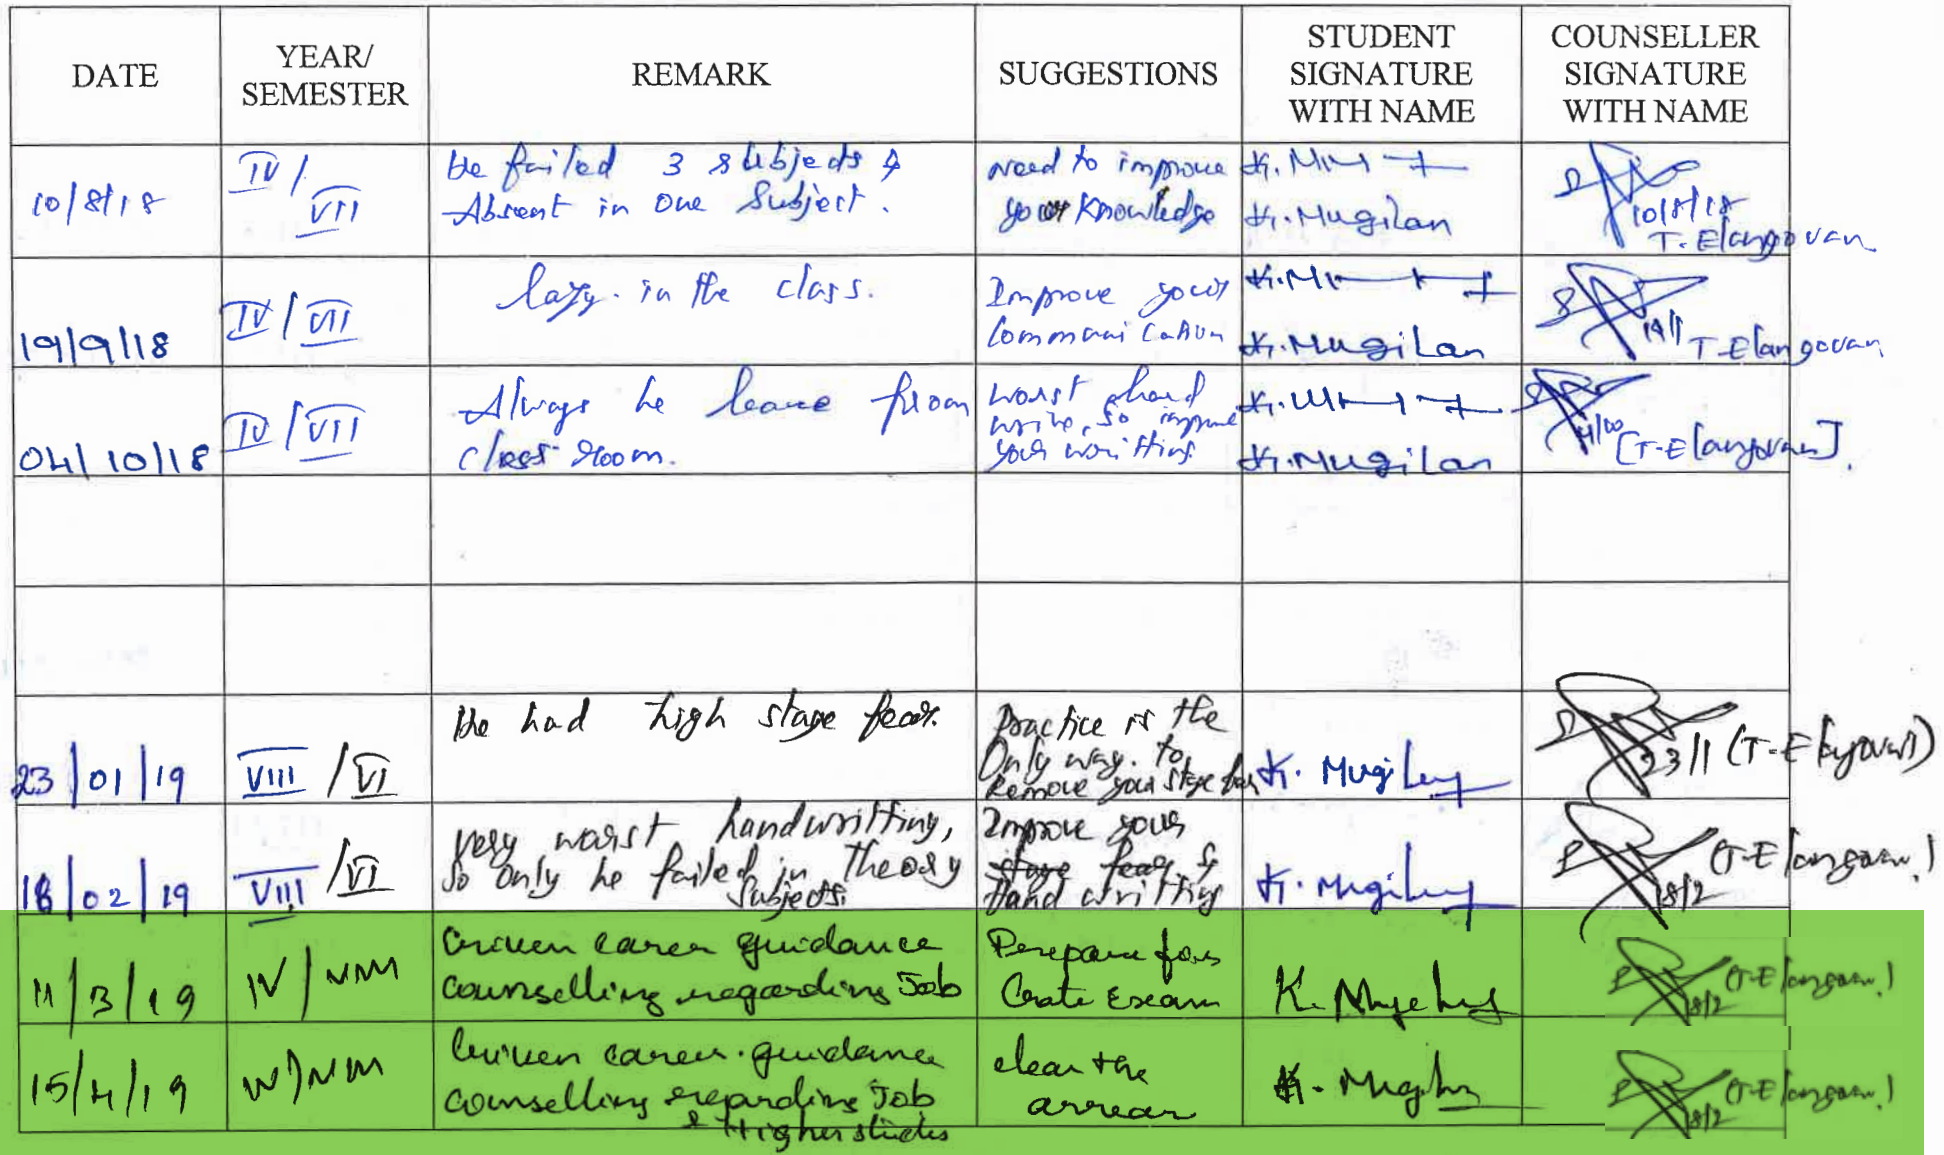 DATE
YEAR/
SEMESTER
REMARK
SUGGESTIONS
STUDENT
SIGNATURE
WITH NAME
COUNSELLER
SIGNATURE
WITH NAME
10/8/18
IV/
VII
He failed 3 subjects &
Absent in one Subject.
Need to improve
your knowledge
K.
K.Mugilan
10/8/18
T.Elangovan
19/9/18
IV/VII
lazy. in the class.
Improve your
Communication
K.Mugilan
19/9
T-Elangovan
04/10/18
IV/VII
Always he leave from
class room.
worst hand
write, so improve
your writting
K.Mugilan
4/10
[T-Elangovan].
23/01/19
VIII/VI
He had high stage fear.
Practice is the
Only way. to
Remove your stage fear
K. Mugilan
23/1 (T-Elangovan)
18/02/19
VIII/VI
very worst handwritting,
so only he failed in Theory
Subjects.
Improve your
stage fear &
Hand writting
K. Mugilan
18/2
(T-Elangovan)
11/3/19
IV/VIII
Given career guidance
counselling regarding Job
Prepare for
Gate Exam
K. Mugilan
18/2
(T-Elangovan)
15/4/19
IV/VIII
Given career guidance
counselling regarding Job
& Higher studies
clear the
arrear
K. Mugilan
18/2
(T-Elangovan)